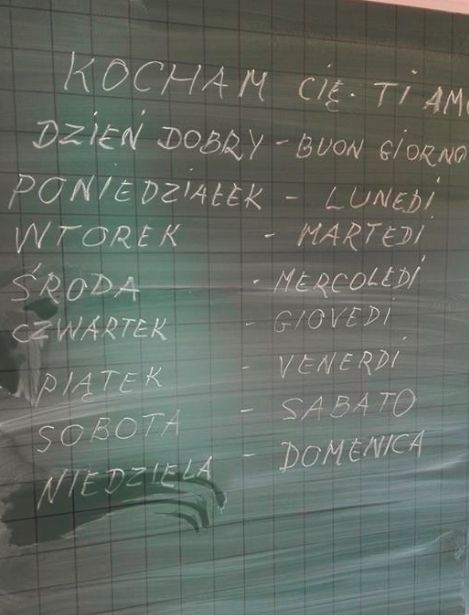 KOCHAM CIĘ. TI AM
DZIEŃ DOBRY - BUON GIORNO
PONIEDZIAŁEK - LUNEDÌ
WTOREK - MARTEDÌ
ŚRODA - MERCOLEDÌ
CZWARTEK - GIOVEDÌ
PIĄTEK - VENERDÌ
SOBOTA - SABATO
NIEDZIELA - DOMENICA